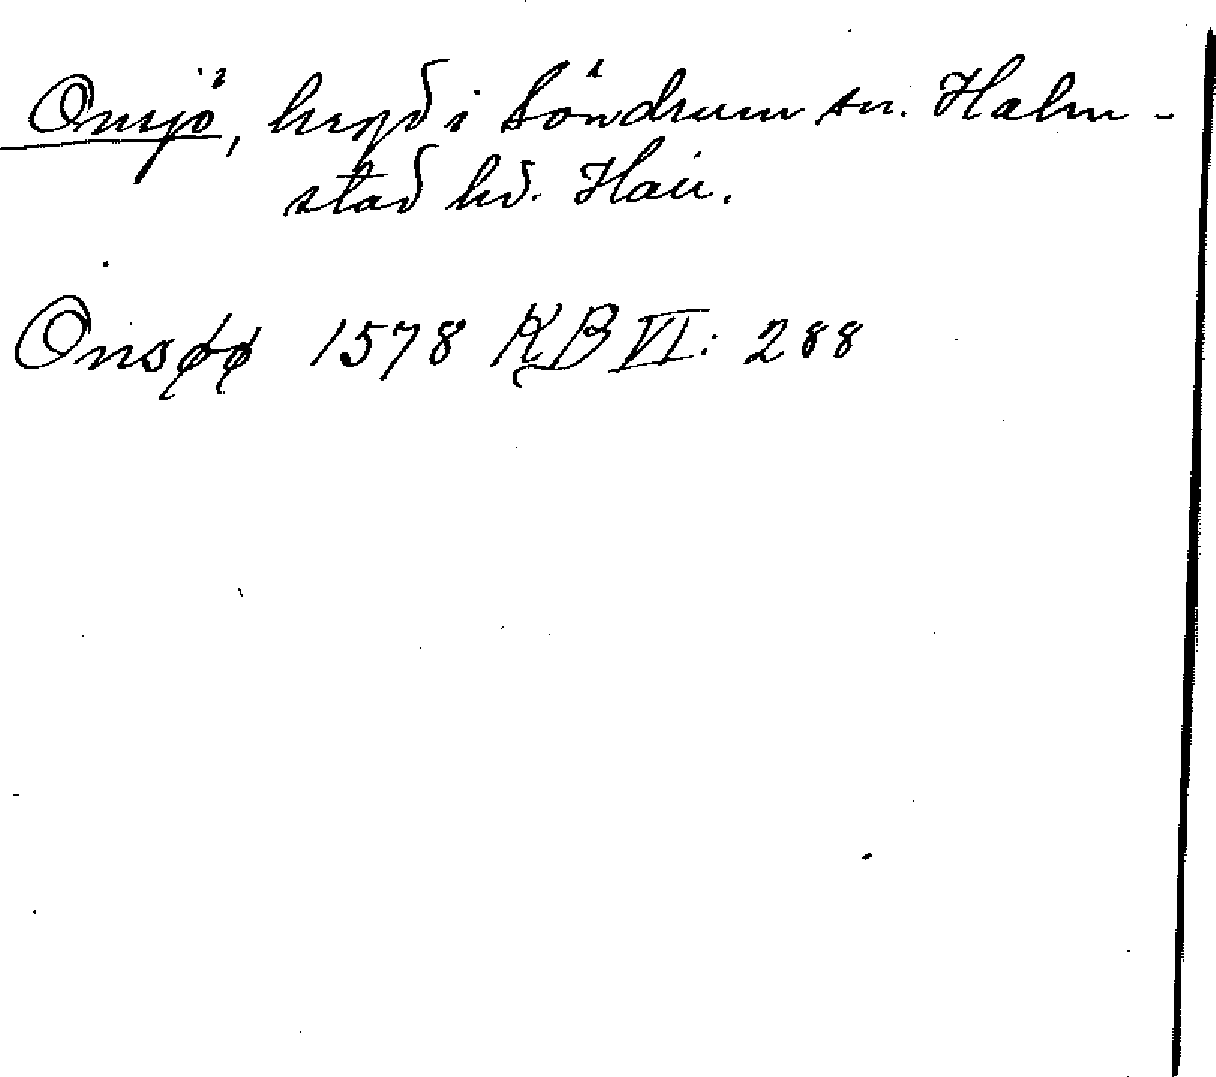 Onsjö, bygd i Söndrum sn. Halm-
stad hd. Hall.
Onsøø 1578 KB VI: 288